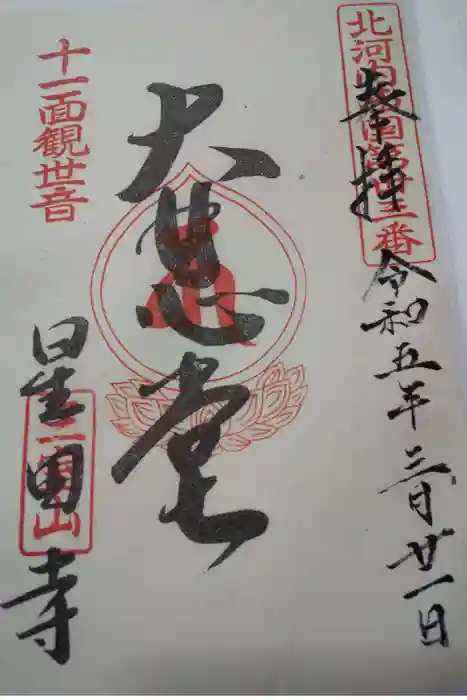 北河内西国第
番
奉拝
令和五年三月廿一日
大悲堂
十一面観世音
星田寺
山